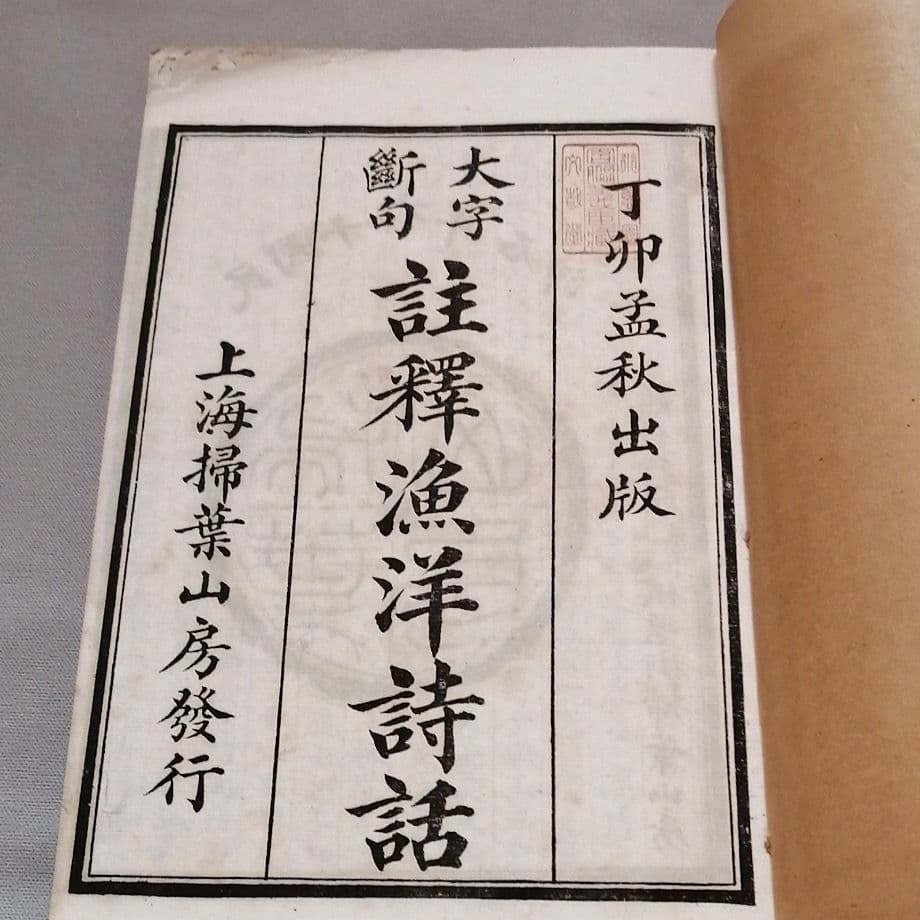 丁卯孟秋出版
大字
斷句
註釋漁洋詩話
上海掃葉山房發行